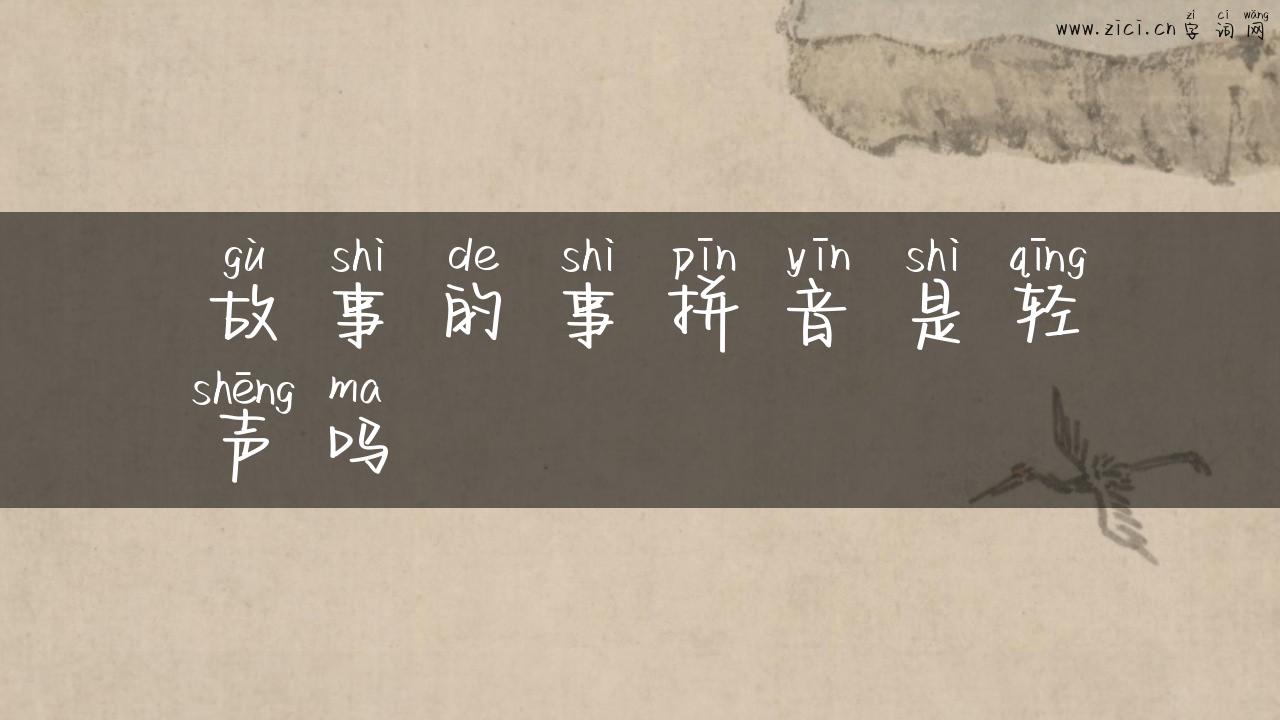 zì cí wǎng
www.zici.cn 字词网
gù shì de shì pīn yīn shì qīng
故事的事拼音是轻
shēng ma
声吗